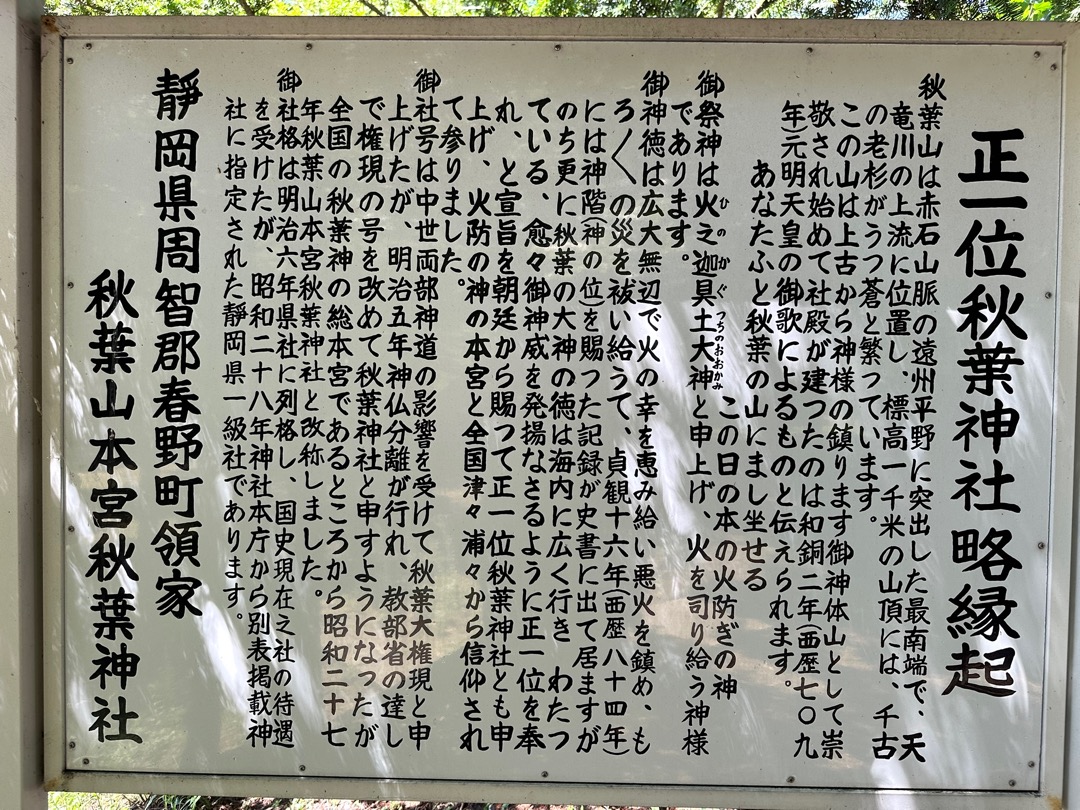 正一位秋葉神社略縁起
秋葉山は赤石山脈の遠州平野に突出した最南端で、天
竜川の上流に位置し、標高一千米の山頂には、千古
の老杉がうつ蒼と繁っています。
この山は上古から神様の鎮ります御神体山として崇
敬され始めて社殿が建つたのは和銅二年(西歴七〇九
年)元明天皇の御歌によるものと伝えられます。
あなたふと秋葉の山にまし坐せる
この日の本の火防ぎの神
御祭神は火之迦具土大神と申上げ、火を司り給う神様
ひのかぐつちのおおかみ
であります。
御神徳は広大無辺で火の幸を恵み給い悪火を鎮め、も
ろ〳〵の災を祓い給うて、貞観十六年(西歴八十四年)
には神階(神の位)を賜った記録が史書に出て居ますが
のち更に秋葉の大神の徳は海内に広く行き わたつ
ている、愈々御神威を発揚なさるように正一位を奉
れ、と宣旨を朝廷から賜つて正一位秋葉神社とも申
上げ、火防の神の本宮と全国津々浦々から信仰され
て参りました。
御社号は中世両部神道の影響を受けて秋葉大権現と申
上げたが、明治五年神仏分離が行れ、教部省の達し
で権現の号を改めて秋葉神社と申すようになったが
全国の秋葉神の総本宮であるところから昭和二十七
年秋葉山本宮秋葉神社と改称しました。
御社格は明治六年県社に列格し、国史現在之社の待遇
を受けたが、昭和二十八年神社本庁から別表掲載神
社に指定された静岡県一級社であります。
靜岡県周智郡春野町領家
秋葉山本宮秋葉神社